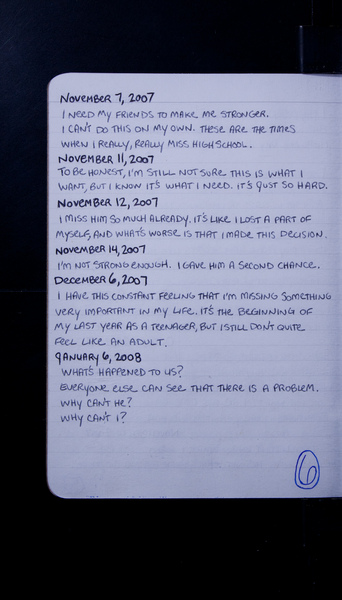 NOVEMBER 7, 2007
I NEED MY FRIENDS TO MAKE ME STRONGER.
I CAN'T DO THIS ON MY OWN. THESE ARE THE TIMES
WHEN I REALLY, REALLY MISS HIGH SCHOOL.
NOVEMBER 11, 2007
TO BE HONEST, I'M STILL NOT SURE THIS IS WHAT I
WANT, BUT I KNOW IT'S WHAT I NEED. IT'S JUST SO HARD.
NOVEMBER 12, 2007
I MISS HIM SO MUCH ALREADY. IT'S LIKE I LOST A PART OF
MYSELF, AND WHAT'S WORSE IS THAT I MADE THIS DECISION.
NOVEMBER 14, 2007
I'M NOT STRONG ENOUGH. I GAVE HIM A SECOND CHANCE.
DECEMBER 6, 2007
I HAVE THIS CONSTANT FEELING THAT I'M MISSING SOMETHING
VERY IMPORTANT IN MY LIFE. IT'S THE BEGINNING OF
MY LAST YEAR AS A TEENAGER, BUT I STILL DON'T QUITE
FEEL LIKE AN ADULT.
JANUARY 6, 2008
WHAT'S HAPPENED TO US?
EVERYONE ELSE CAN SEE THAT THERE IS A PROBLEM.
WHY CAN'T HE?
WHY CAN'T I?
6